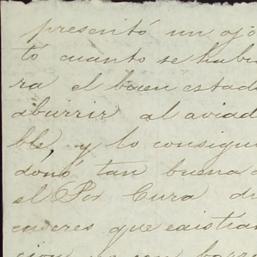 presentó un ajo
to cuanto se habi
ra el buen estad
aburrir al aviad
ble, y lo consigui
donó tan buena
el Por Cura d
eceres que existían
con borr